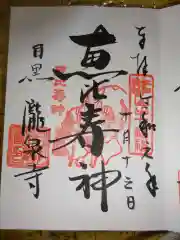 奉拝 令和元年
十月十三日
恵比寿神
目黒
瀧泉寺